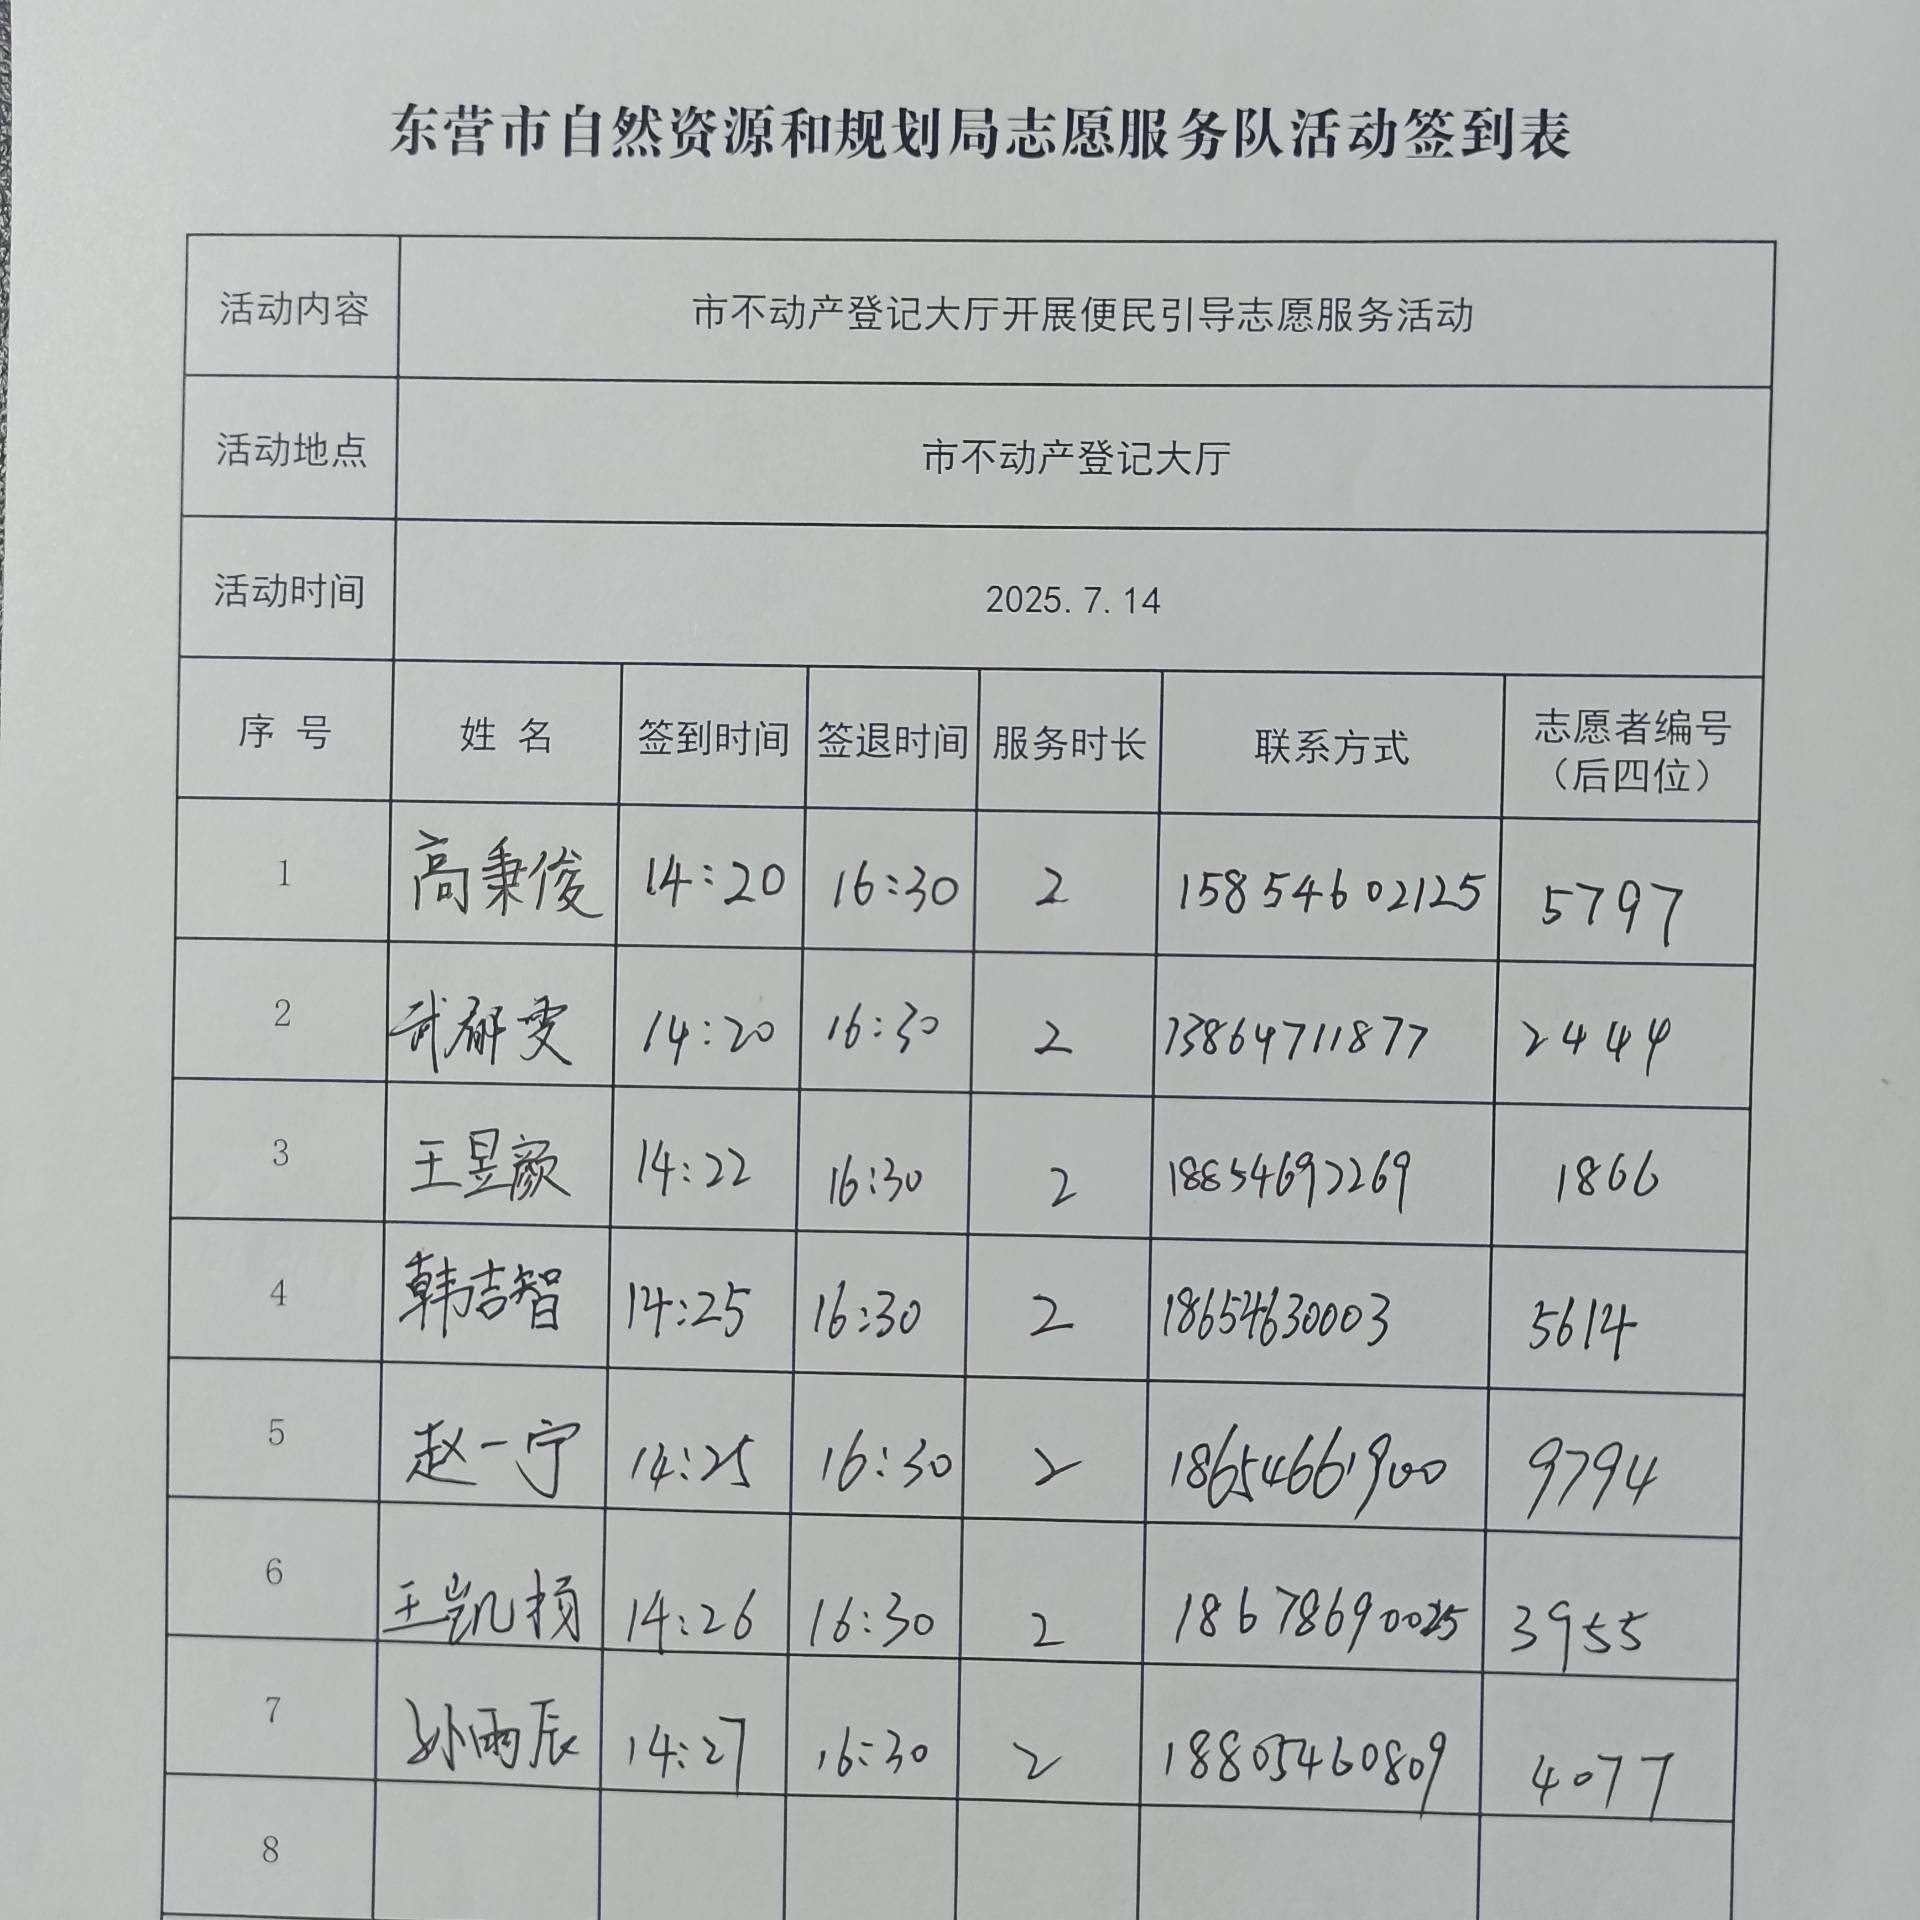 东营市自然资源和规划局志愿服务队活动签到表
活动内容 市不动产登记大厅开展便民引导志愿服务活动
活动地点 市不动产登记大厅
活动时间 2025.7.14
序 号 姓 名 签到时间 签退时间 服务时长 联系方式 志愿者编号
（后四位）
1 高秉俊 14:20 16:30 2 15854602125 5797
2 武郁雯 14:20 16:30 2 13864711877 2444
3 王昱颜 14:22 16:30 2 18854692269 1866
4 韩吉智 14:25 16:30 2 18654630003 5614
5 赵一宁 14:25 16:30 2 18654661900 9794
6 王凯 14:26 16:30 2 18678690025 3955
7 孙雨辰 14:27 16:30 2 18805460809 4077
8